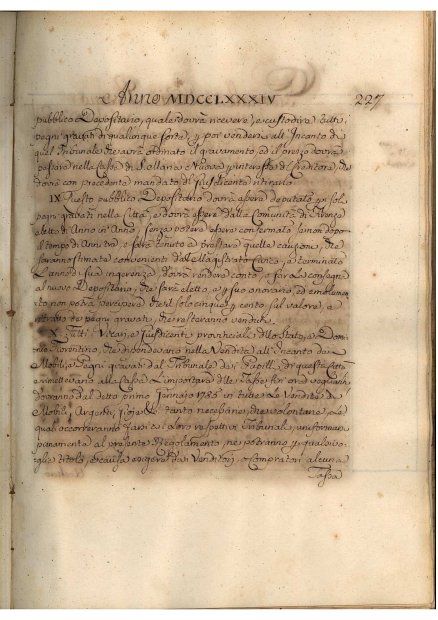 Anno MDCCLXXXIV 227
pubblico Depositario, quale dovrà ricevere, e custodire tutti i
pegni gravati di qualunque sorta, e per vendersi all' Incanto di
quel Tribunale che avrà ordinato il gravamento, ed il prezzo dovrà
passare nella Cassa di Sollana e Nuova per interesse di Creditori, che
dovrà con precedente mandato di giusdicente ritirarlo
IX Questo pubblico Depositario dovrà essere deputato per i soli
pegni gravati nella Città, e dovrà essere dalla Comunità di Firenze
eletto di Anno in Anno, senza potersi essere confermato se non dopo
il tempo di Anni tre, e sarà tenuto a prestare quelle cauzioni, che
saranno stimate convenienti dal Magistrato Civico, e terminato
l'anno di sua ingerenza dovrà render conto, e far le consegne
al nuovo Depositario, che sarà eletto, e per suo onorario, ed emolumen-
to non potrà percipere che il solo cinque per cento sul valore, e
retratto dei pegni gravati, che resteranno venduti.
X. Tutti i Vicari, e Giusdicenti provinciali dello Stato, e Domi-
nio Fiorentino, che dipendevano nella Vendita all' Incanto de
Mobili, e Pegni gravati dal Tribunale dei Pupilli di questa Città
e rimettevano alla Cassa l'importare delle Tasse fin ora veglianti
dovranno dal detto primo Gennajo 1785 in tutte le Vendite di
Mobili, Argenti, Gioje &c. tanto necessarie, che volontarie, le
quali occorreranno farsi ne i loro respettivi Tribunali, uniforman-
pienamente al presente Regolamento, ne potranno per qualsivo-
glia titolo, e causa esigere dai Venditori, o Compratori alcuna
Tassa